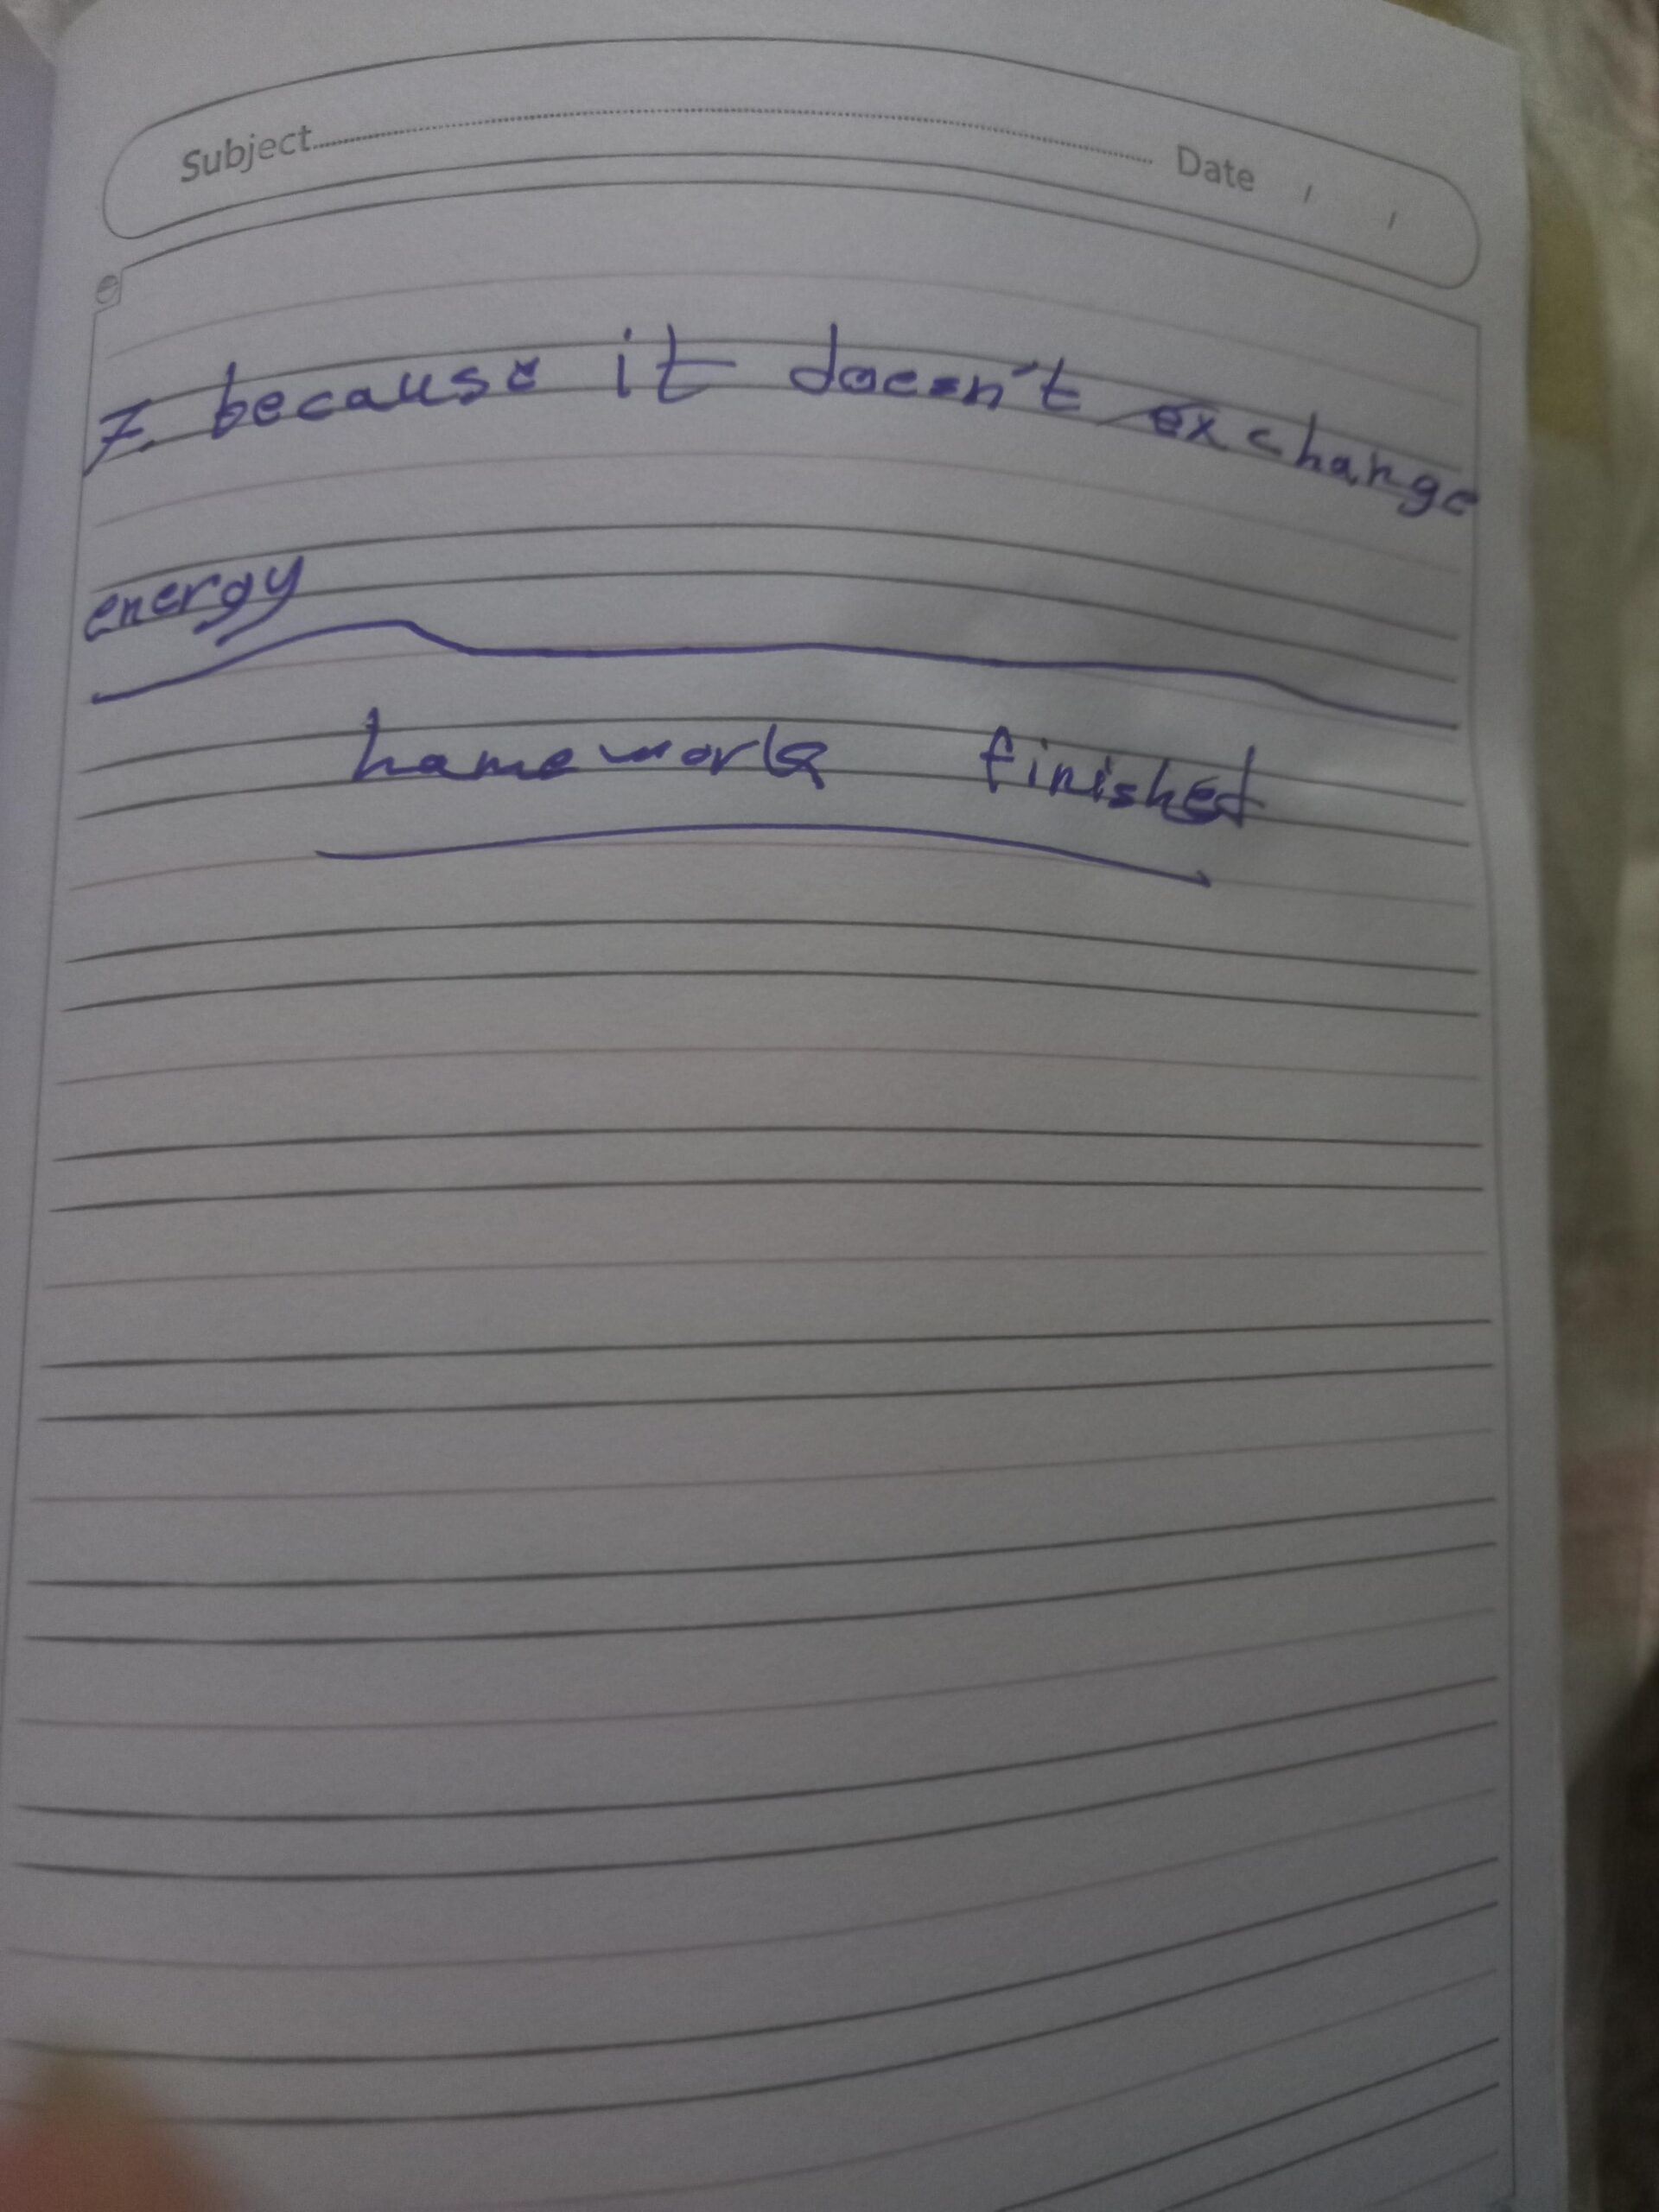 Subject........................ Date / /
7. because it doesn't exchange
energy
homework finished